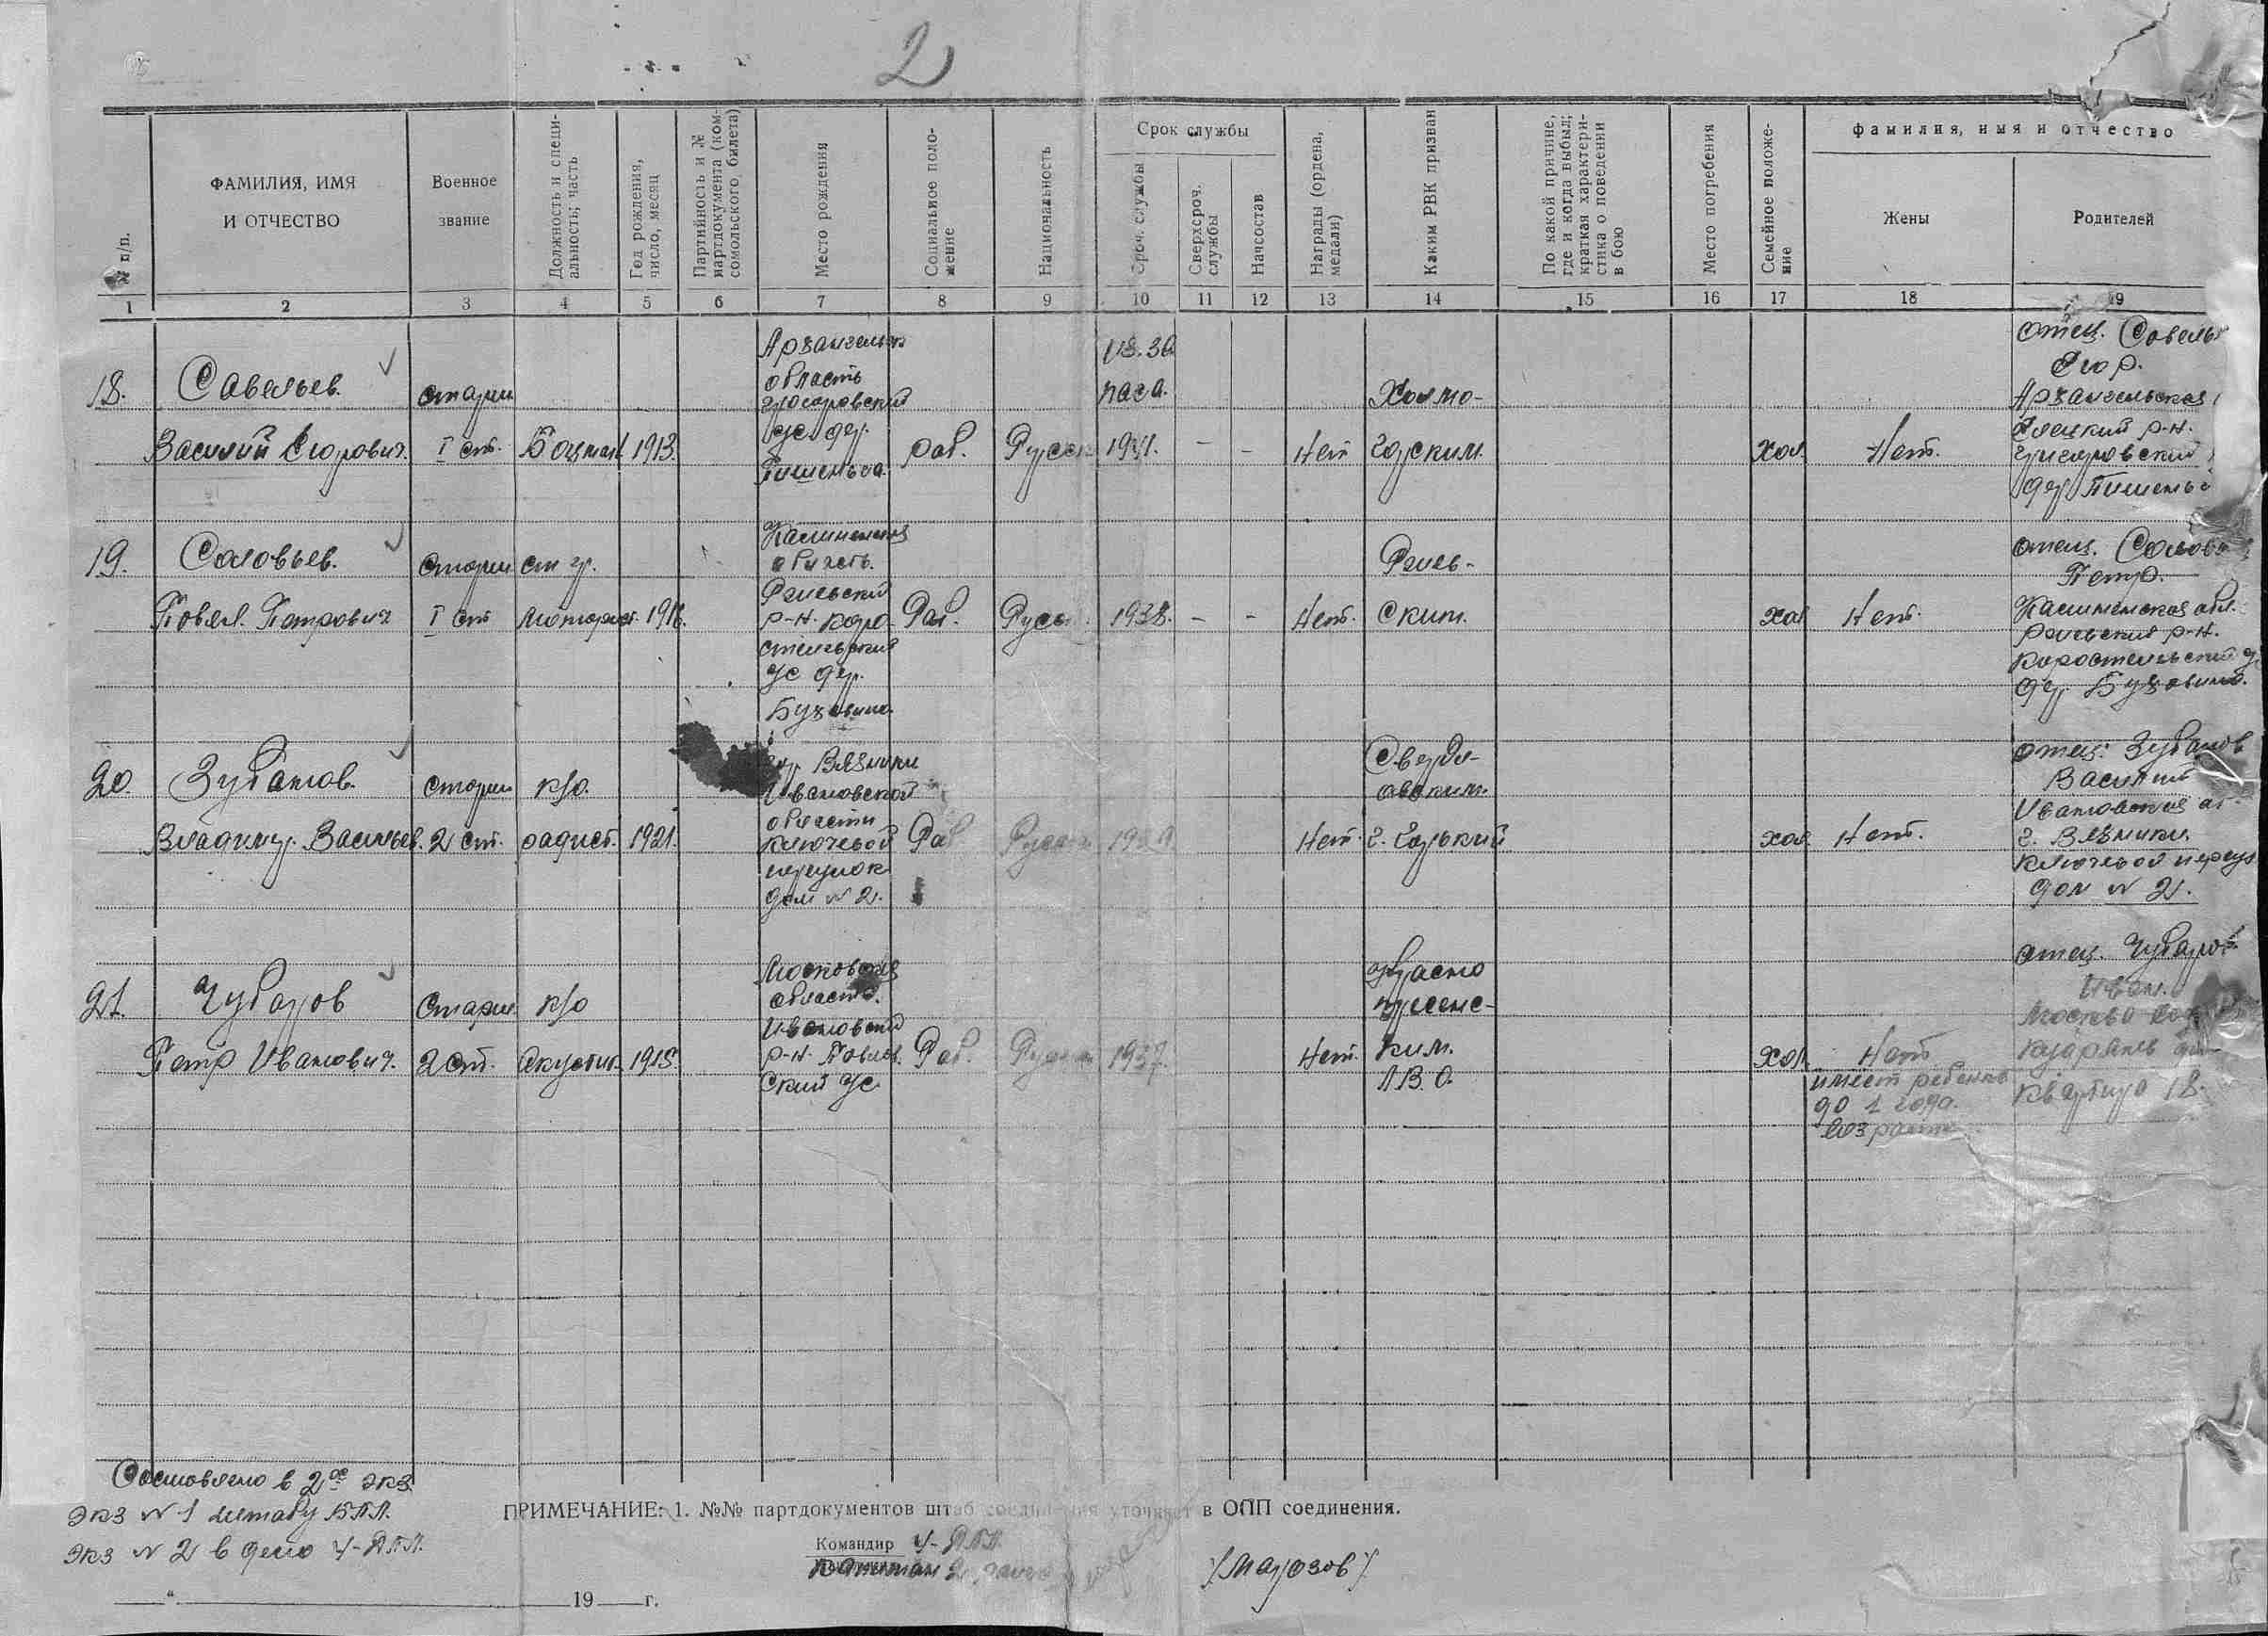 2
№ п/п.
ФАМИЛИЯ, ИМЯ
И ОТЧЕСТВО
Военное
звание
Должность и специ-
альность; часть
Год рождения,
число, месяц
Партийность и №
партдокумента (ком-
сомольского билета)
Место рождения
Социальное поло-
жение
Национальность
Срок службы
Сроч. службы
Сверхсроч.
службы
Начсостав
Награды (ордена,
медали)
Каким РВК призван
По какой причине,
где и когда выбыл;
краткая характери-
стика о поведении
в бою
Место погребения
Семейное положе-
ние
фамилия, имя и отчество
Жены
Родителей
1 2 3 4 5 6 7 8 9 10 11 12 13 14 15 16 17 18 19
18.
Савельев.
Василий Егорович.
старш
I ст.
Боцман
1913.
область
ус дер.
раб.
Русск
1931.
-
-
Нет
Холмо-
горским.
хол
Нет.
отец. Савелье
Егор.
Архангельская
р-н.
дер.
19.
Соловьев.
Павел. Петрович
Старш
I ст
ст гр.
моторист.
Калининская
область.
Ржевский
р-н. Коро
стельский
ус дер.
Бузовино.
Раб.
Русск
1938.
-
-
Нет.
Ржев-
ским.
хол
Нет.
отец. Солов
Петр.
Калининская обл.
Ржевский р-н.
Коростельский
дер. Бузовино.
20.
Зубанов.
Владимир. Васильев.
старш
2 ст.
к/о.
радист.
1921.
гор. Вязники
Ивановской
области
Ключевой
переулок
дом № 2.
Раб
Русск
Нет.
Сверд-
ловским
г. Горький
хол.
Нет.
отец. Зубанов
Василий
Ивановская об
г. Вязники.
Ключевой переул
дом № 2.
21.
Чубаров
Петр Иванович.
Старш.
2 ст.
к/о
акустик.
1915.
Московская
область.
р-н. Павлов.
ский ус
Раб.
Русск
1937.
Нет.
Красно
пресненс-
ким.
хол.
Нет
имеет ребенка
до 1 года.
возраста
отец. Чубаров
Иван.
Москва
квартира 18.
Составлено в 2ое экз.
экз № 1 штабу БПЛ.
экз № 2 в дело
ПРИМЕЧАНИЕ: 1. №№ партдокументов штаб соединения уточняет в ОПП соединения.
Командир
капитан 2 ранга
/Морозов/
" 19 г.